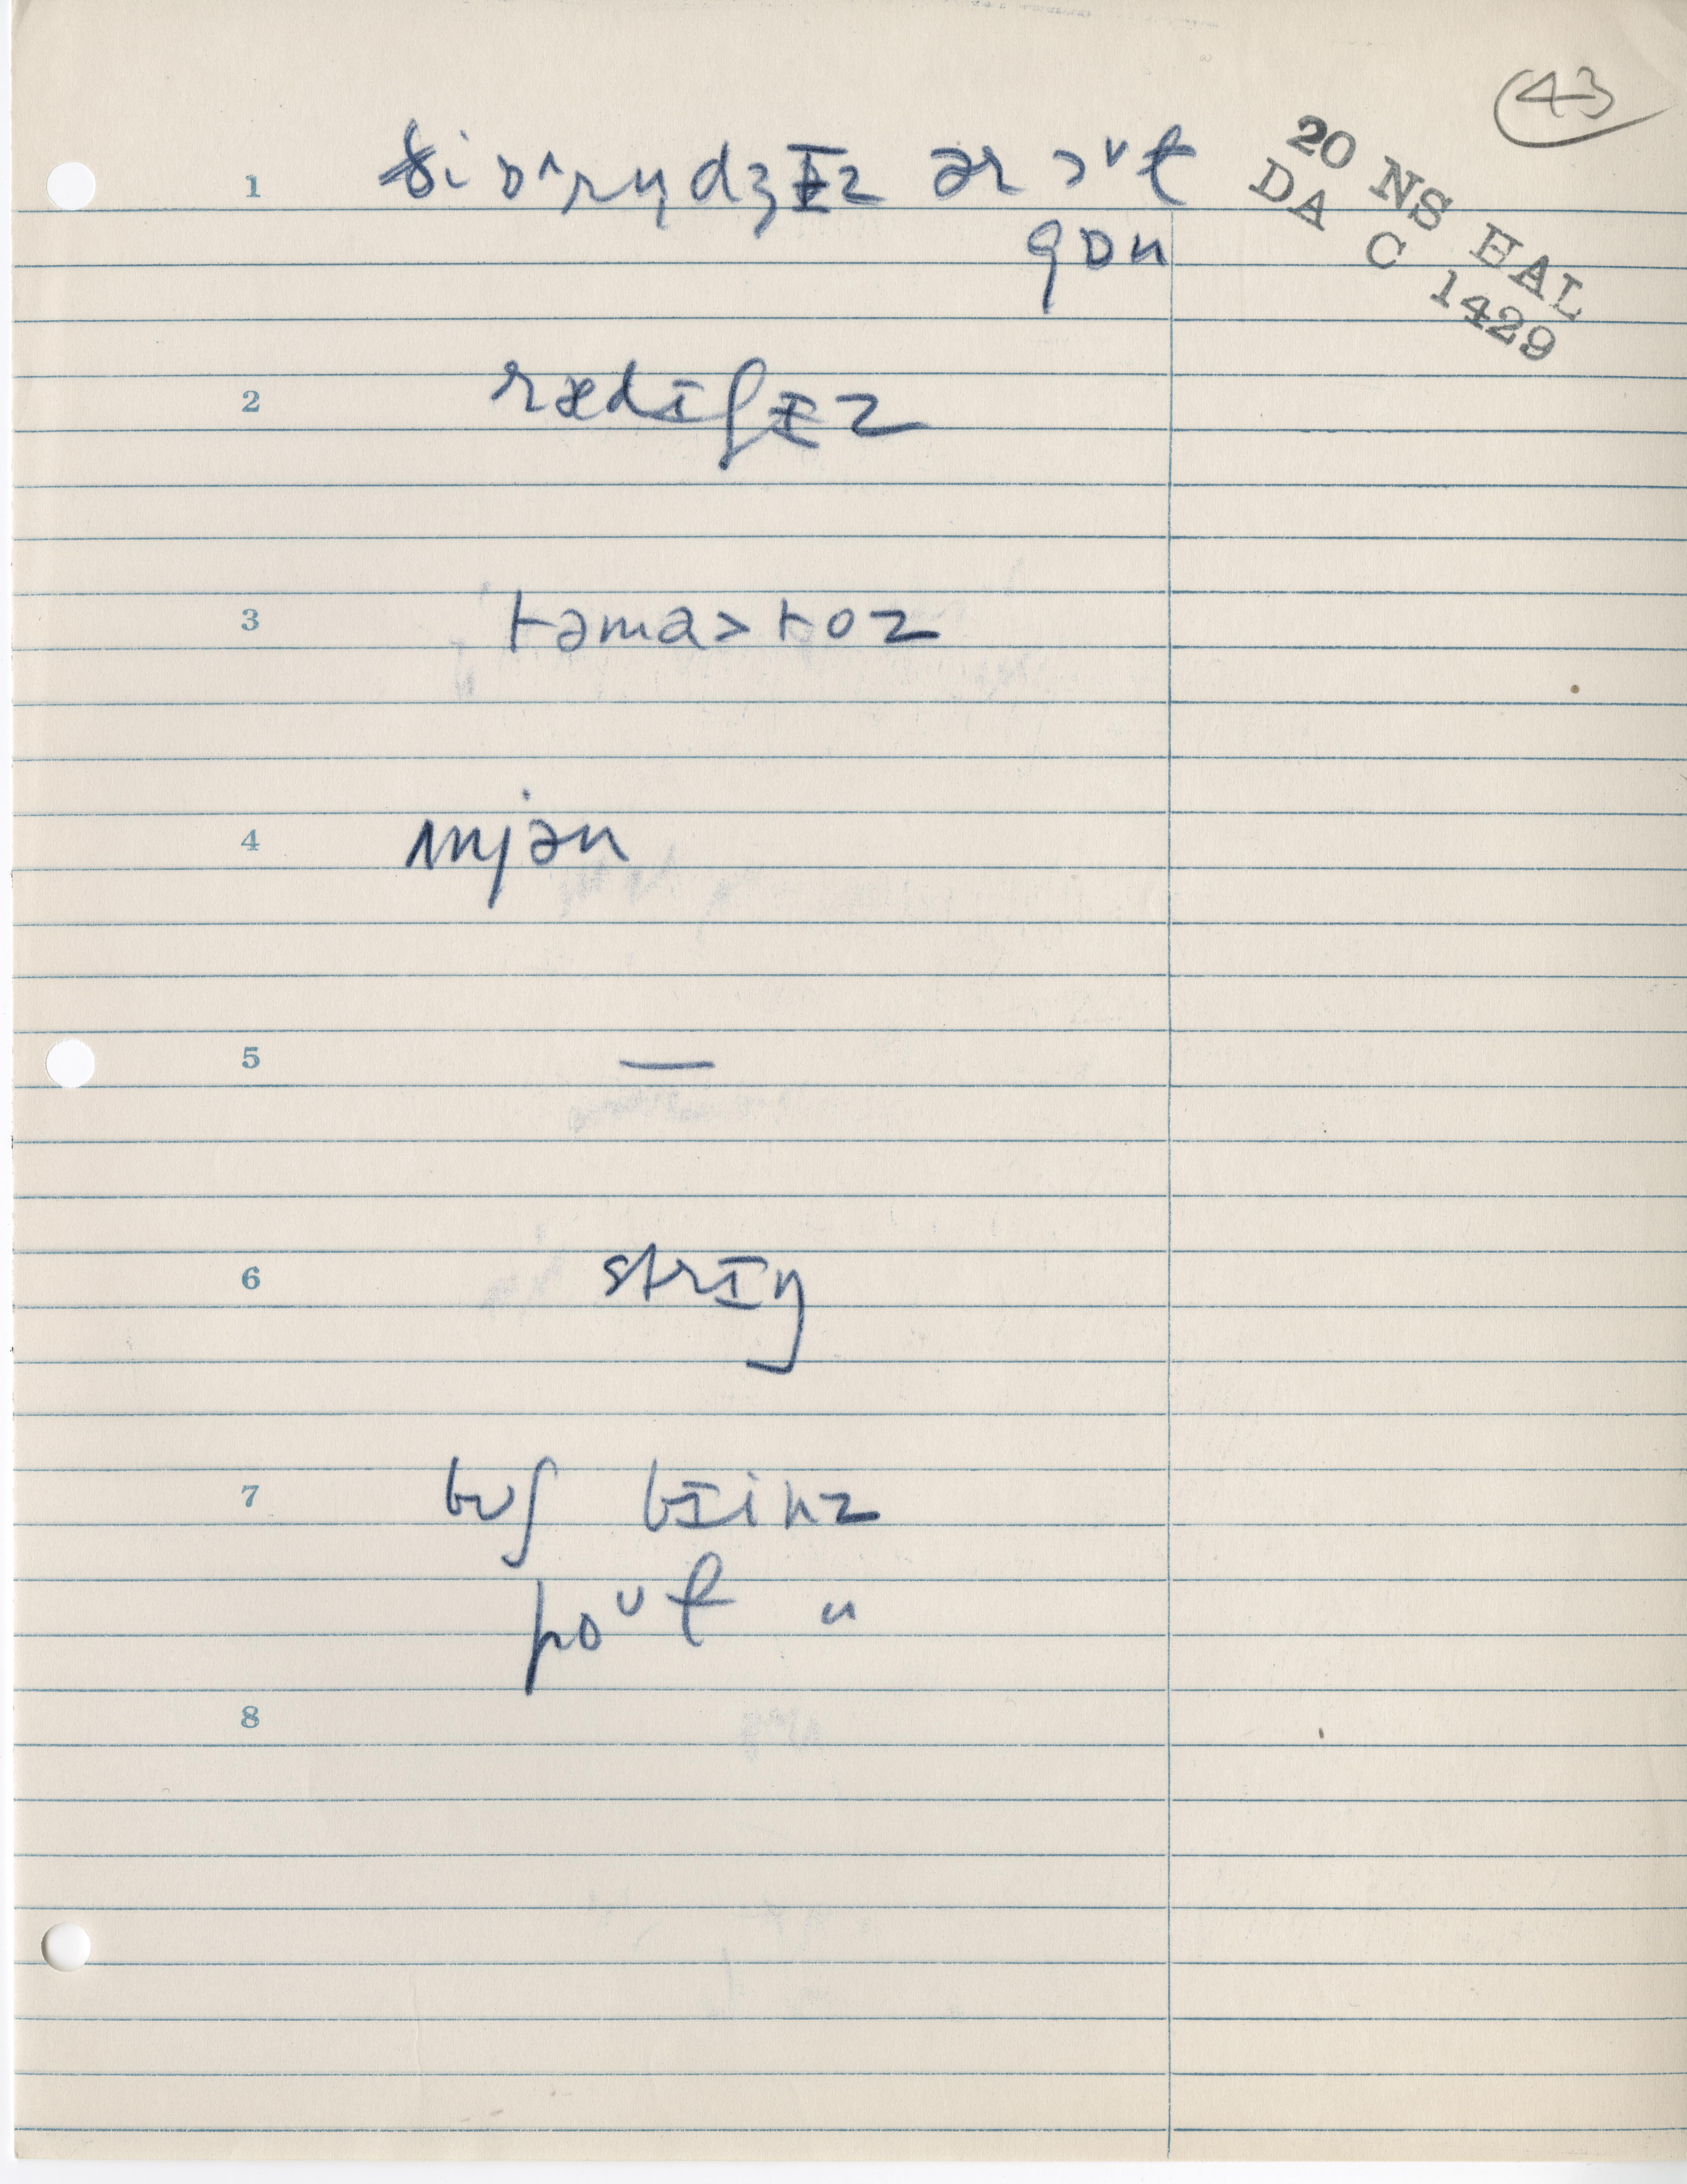 43
20 NS HAL
DA C 1429
1 ði ɒ^rɪndʒɨz ər ɔᵛɫ
gɒn
2 rædɪʃɨz
3 təma>toz
4 ʌnjən
5 —
6 strɪŋ
7 bʊʃ bɪinz
poᵛɫ "
8